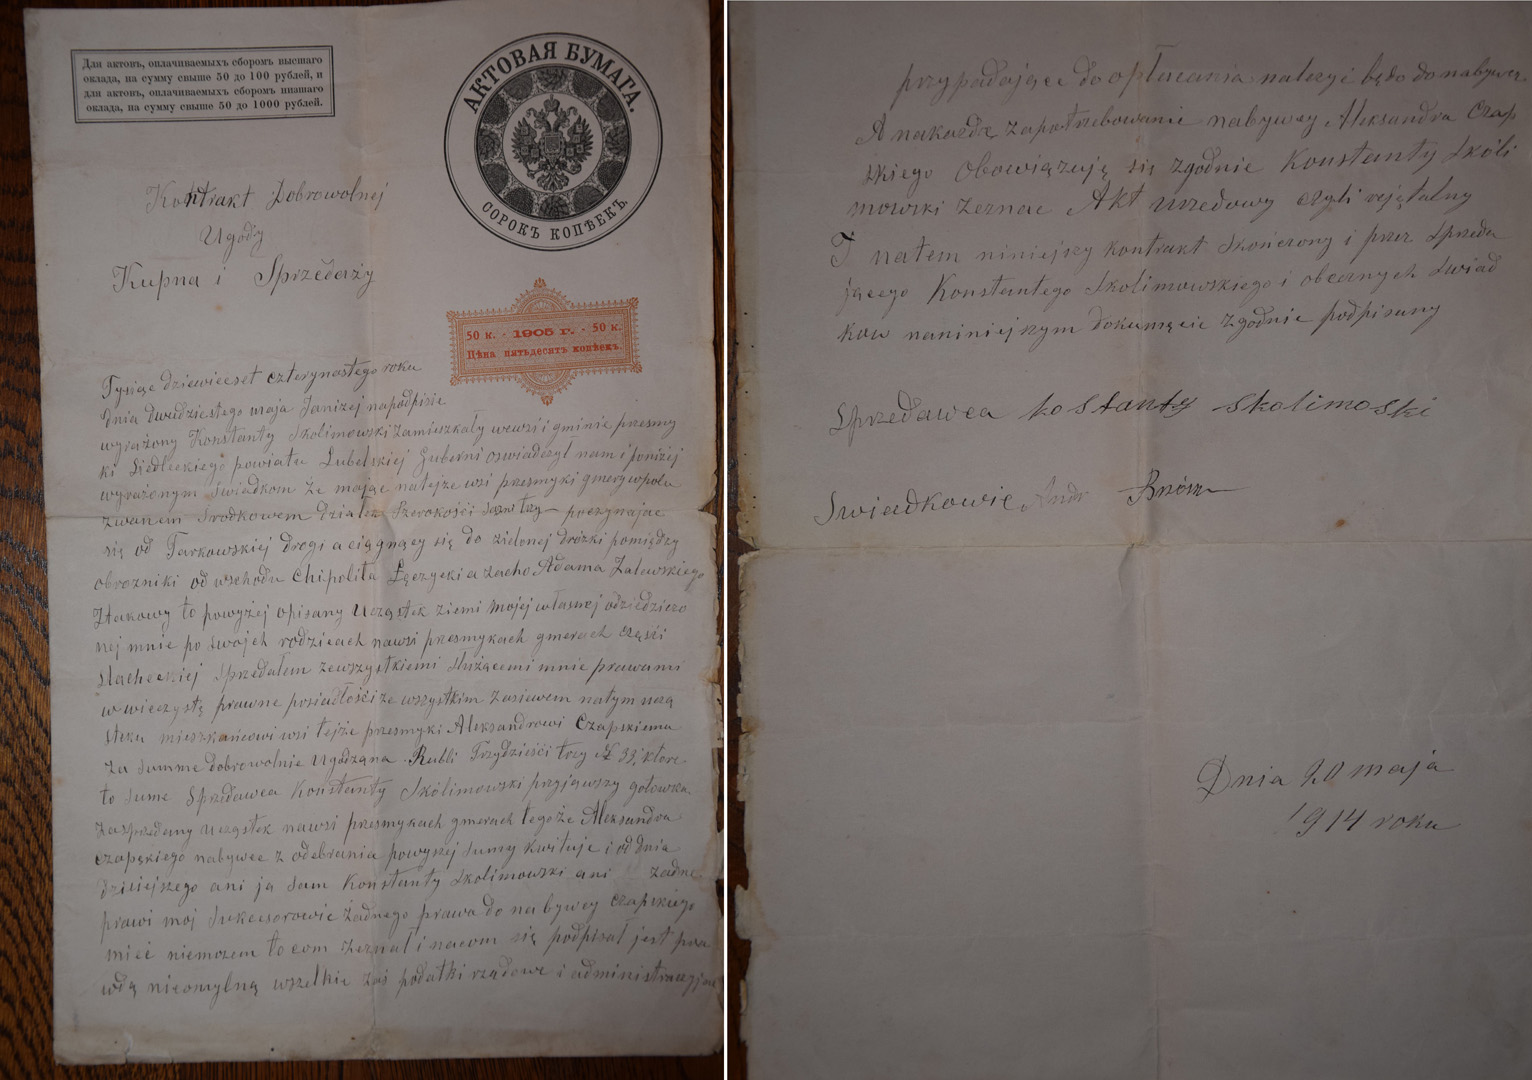 Для актовъ, оплачиваемыхъ сборомъ высшаго
оклада, на сумму свыше 50 до 100 рублей, и
для актовъ, оплачиваемыхъ сборомъ низшаго
оклада, на сумму свыше 50 до 1000 рублей.
АКТОВАЯ БУМАГА.
СОРОКЪ КОПѢЕКЪ.
Kontrakt Dobrowolnej
Ugody
Kupna i Sprzedaży
50 к. - 1905 г. - 50 к.
Цѣна пятьдесятъ копѣекъ.
Tysiąc dziewiecset czternastego roku
Dnia dwudziestego maja Janizej napodpisie
wyrażony Konstanty Skolimowski zamieszkały wewsi i gminie przesmy
ki Siedleckiego powiatu Lubelskiej Guberni oswiadczył nam i poniżej
wyrażonym swiadkom że mając natejze wsi przesmyki gmery wpolu
zwanem Srodkowem Działek Szerokości trzy poczynając
się od Tarkowskiej drogi a ciągnący się do zielonej drożki pomiędzy
obrozniki od wschodu Chipolita Łęczycki a zacho Adama Zalewskiego
Htakowy to powyżej opisany uczqstek ziemi mojej własnej odziedziczo
nej mnie po swojch rodzicach nawsi przesmykach gmerach części
slacheckiej Sprzedałem zewszystkiemi słuzącemi mnie prawami
w wieczystę prawne posiadłości ze wszystkim zasiewem natym uczą
stku mieszkańcowi wsi tejże przesmyki Aleksandrowi Czapskiemu
za Summe dobrowolnie ugodzana Rubli Trzydzieści trzy № 33, które
to sume Sprzedawca Konstanty Skolimowski przyjąwszy gotowką
zasprzedany uczqstek nawsi przesmykach gmerach tegoże Aleksandra
Czapskiego nabywce z odebrania powyzej sumy kwituje i od dnia
dzisiejszego ani ja sam Konstanty Skolimowski ani żadne
prawi moj Sukcesorowie żadnego prawa do nabywcy Czapskiego
mieć niemozem to com zeznał i naczom się podpisał jest pra
wdą nieomylną wszelkie zaś podatki rządowe i administracyjne
przypadające do opłacania nalezyć będo do nabywcy
A nakazdę zapotrzebowanie nabywcy Aleksandra Czap
skiego obowiązują się zgodnie Konstanty Skoli
mowski zeznac Akt urzedowy czyli rejętalny
I natem niniejszy kontrakt skończony i przez sprzeda
jącego Konstantego Skolimowskiego i obecnych swiad
kow naniniejszym dokumęcie zgodnie podpisany
Sprzedawca kostanty skolimoski
Swiadkowie Andr
Dnia 20 maja
1914 roku